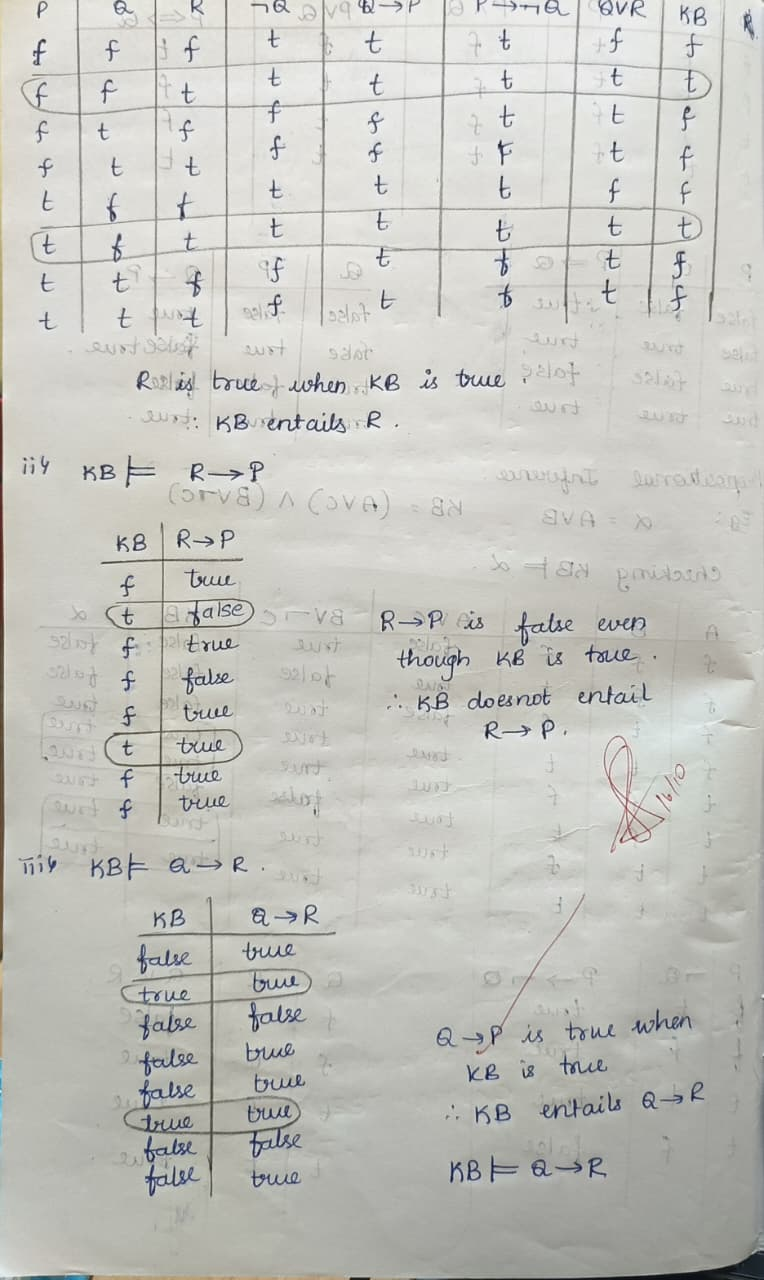 P Q R ¬Q Q→P P→¬Q QVR KB
f f f t t t f f
f f t t t t t t
f t f f f t t f
f t t f f F t f
t f f t t t f f
t f t t t t t t
t t f f t f t f
t t t f t f t f
R is true when KB is true.
∴ KB entails R.
ii) KB ⊨ R→P
KB R→P
f true
t false
f true
f false
f true
t true
f true
f true
R→P is false even
though KB is true.
∴ KB doesnot entail
R→P.
16/10
iii) KB ⊨ Q→R.
KB Q→R
false true
true true
false false
false true
false true
true true
false false
false true
Q→P is true when
KB is true
∴ KB entails Q→R
KB ⊨ Q→R